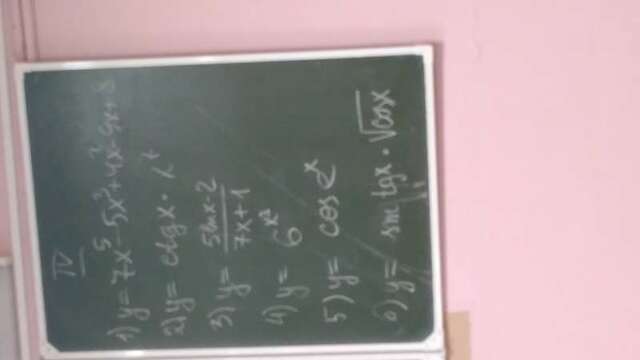 IV
1) y = 7x⁵ - 5x³ + 4x² - 9x + 8
2) y = ctgx · x⁷
3) y = (5lnx - 2)/(7x + 1)
4) y = 6^(x²)
5) y = cos eˣ
6) y = sin tgx · √cosx